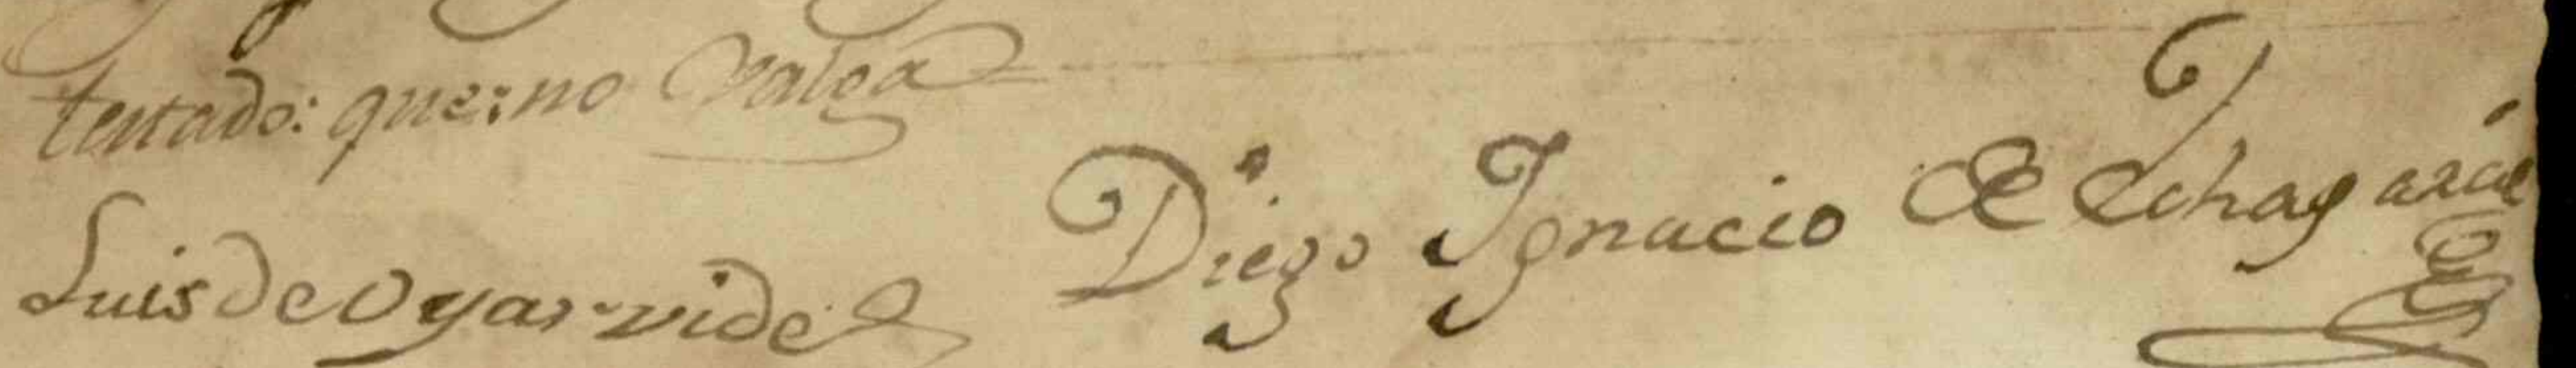 testado: que: no valga
Luis de Oyarvide
Diego Ignacio de Echag